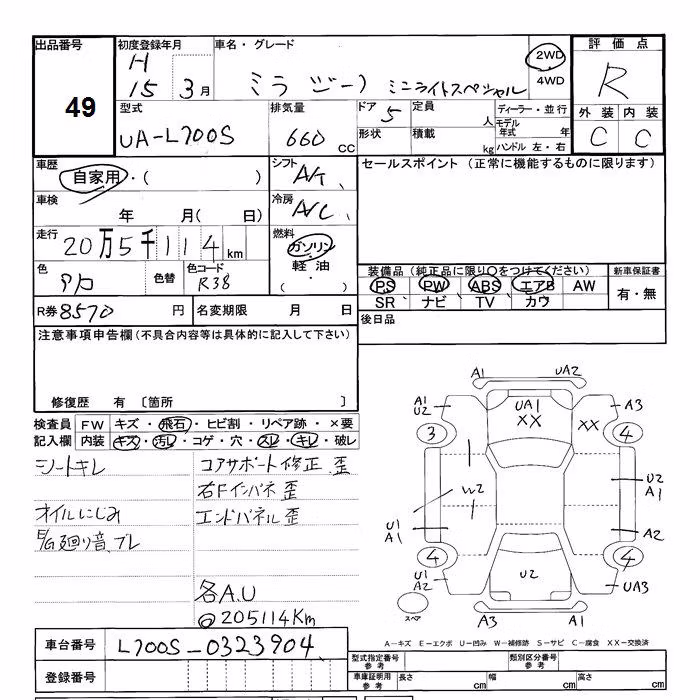 出品番号
49
初度登録年月
H
15 3月
車名・グレード
ミラ ジーノ ミニライトスペシャル
2WD
4WD
評価点
R
外装 内装
C C
型式
UA-L700S
排気量
660 CC
ドア 5
形状
定員 人
積載 kg
ディーラー・並行
モデル年式 年
ハンドル 左・右
車歴
自家用・( )
シフト A/T
セールスポイント (正常に機能するものに限ります)
車検
年 月( 日)
冷房 A/C
走行
20万5千114km
燃料
ガソリン
軽油
( )
色
色替
色コード
R38
装備品 (純正品に限り○をつけてください)
新車保証書
PS PW ABS エアB AW
SR ナビ TV カワ
有・無
R券 8570円
名変期限 月 日
後日品
注意事項申告欄(不具合内容等は具体的に記入して下さい)
修復歴 有 〔箇所 〕
検査員記入欄
FW キズ・飛石・ヒビ割・リペア跡・×要
内装 キズ・汚レ・コゲ・穴・スレ・キレ・破レ
シートキレ
コアサポート修正、歪
右Fインパネ歪
オイルにじみ
エンドパネル歪
E/G廻り音、ブレ
各A.U
@205114Km
A1 UA2
A1
U2
UA1
XX
XX
A3
3
4
W2
U2
A1
U1
A1
A2
4
4
U1
A2
U2
UA3
スペア
A3 A1
A-キズ E-エクボ U-凹み W-補修跡 S-サビ C-腐食 XX-交換済
車台番号
L700S-0323904
登録番号
型式指定番号 参考
類別区分番号 参考
車庫証明用 参考
長さ cm
幅 cm
高さ cm